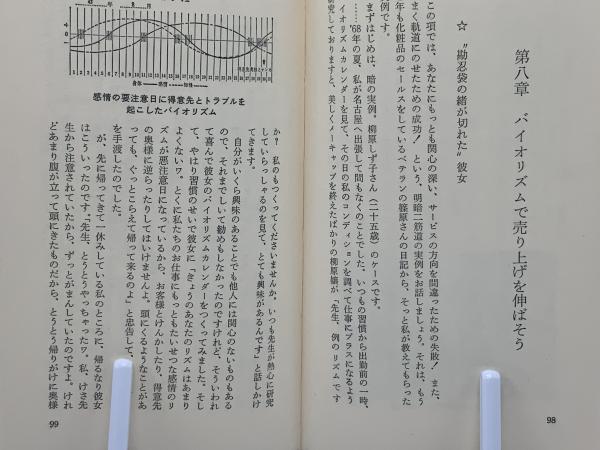 第八章 バイオリズムで売り上げを伸ばそう
☆ “勘忍袋の緒が切れた”彼女
この項では、あなたにもっとも関心の深い、サービスの方向を間違ったための失敗! また、
まく軌道にのせたための成功! という、明暗二筋道の実例をお話しましょう。それは、もう
年も化粧品のセールスをしているベテランの篠原さんの日記から、そっと私が教えてもらった
実例です。
まずはじめは、暗の実例。柳原しず子さん(二十五歳)のケースです。
……’68年の夏、私が名古屋へ出張して間もなくのことでした。いつもの習慣から出勤前の一時、
バイオリズムカレンダーを見て、その日の私のコンディションを調べて仕事にプラスになるよう
研究しておりますと、美しくメーキャップを終えたばかりの柳原嬢が、「先生、例のリズムです
98
1 2 3 4 5 6 7 8 9
身体 感情 知性
感情の要注意日に得意先とトラブルを
起こしたバイオリズム
か? 私のもつくってくださいませんか。いつも先生が熱心に研究
していらっしゃるのを見て、とても興味があるんです」と話しかけ
てきます。
自分がいくら興味のあることでも他人には関心のないものもある
ので、それまでしいて勧めもしなかったのですけれど、そういわれ
て喜んで彼女のバイオリズムカレンダーをつくってみました。そし
て、やはり習慣のせいで彼女に「きょうのあなたのリズムはあまり
よくないワ。とくに私たちのお仕事にもっともたいせつな感情のリ
ズムが悪注意日になっているから、お客様とけんかしたり、得意先
の奥様に逆らったりしてはいけませんよ。頭にくるようなことがあ
っても、ぐっとこらえて帰って来るのよ」と忠告して、
を手渡したのでした。
が、先に帰ってきて一休みしている私のところに、帰るなり彼女
はこういったのです。「先生、とうとうやっちゃったワ。私、けさ先
生から注意されていたから、ずっとがまんしていたのですよ。けれ
どあまり腹が立って頭にきたものだから、とうとう帰りがけに奥様
99